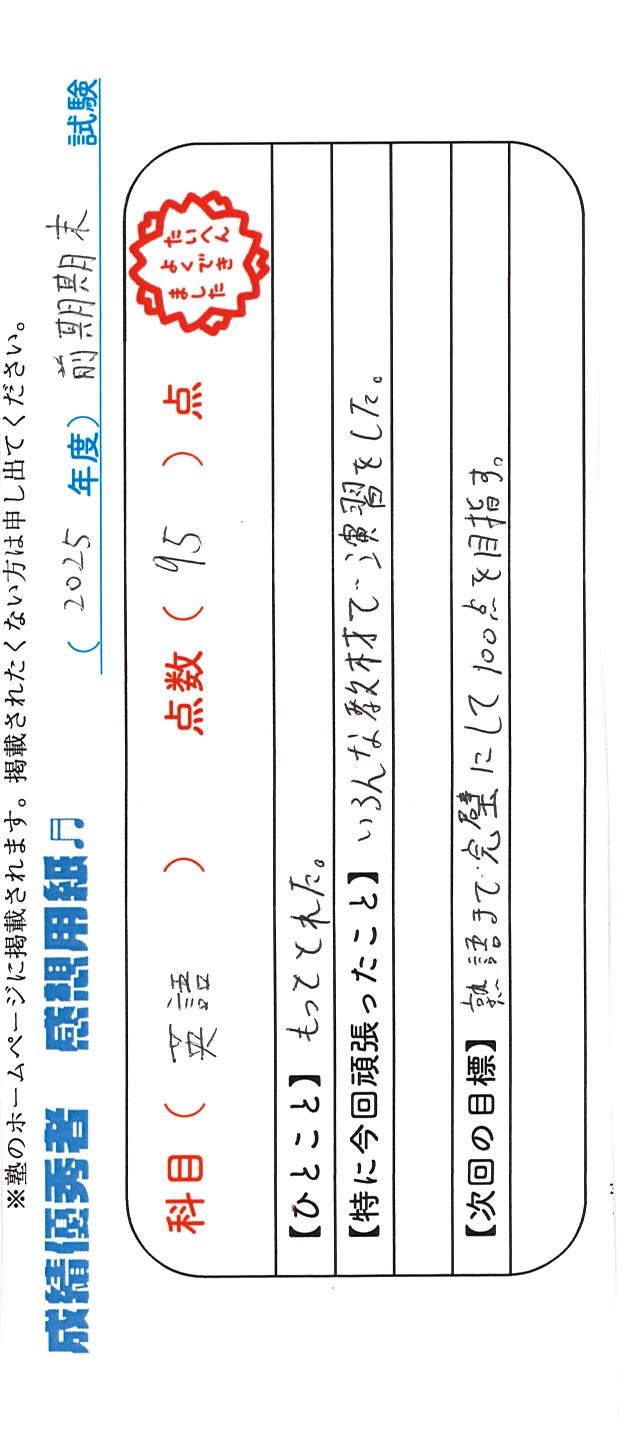 ※塾のホームページに掲載されます。掲載されたくない方は申し出てください。
成績優秀者 感想用紙♫ (2025 年度) 前期期末 試験
科目( 英語 ) 点数( 95 )点
たいへん
よくでき
ました
【ひとこと】もっととれた。
【特に今回頑張ったこと】いろんな教材で演習をした。
【次回の目標】熟語まで完璧にして100点を目指す。